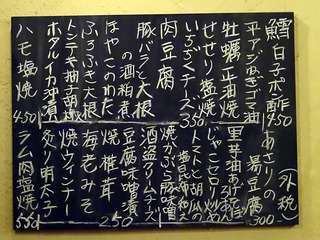 鱈白子ポン酢 450
平アジねぎゴマ油
牡蠣正油焼
せせり塩焼
いぶりチーズ 350
肉豆腐
豚バラと大根
の酒粕煮
ほやこのわた
ふろふき大根
トンテキ柚子胡椒
ホタルイカ沖漬
ハモ塩焼 450
(外税)
あさりの
湯豆腐 500
里芋油あげ
じゃこセロリ炒め
トマトと胡瓜の
塩昆布和え
焼かぶら豚味噌
酒盗クリームチーズ
豆腐味噌漬
焼椎茸 250
海老みそ
焼ウィンナー
炙り明太子
ラム肉塩焼 550